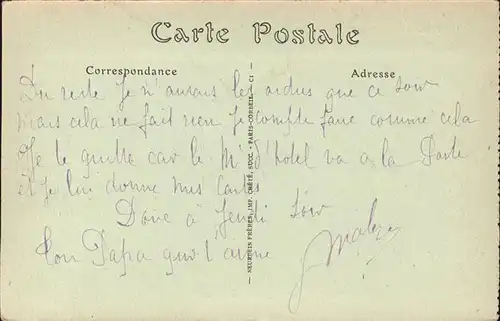 Carte Postale
Correspondance
Adresse
Du reste je n'aurais les ordres que ce soir
mais cela ne fait rien je compte faire comme cela
Je te quitte car le M d'hotel va a la Poste
et je lui donne mes cartes
Donc à jeudi soir
Ton Papa qui t'aime
NEURDEIN FRÈRES, IMP. CRÉTÉ, SUCC. - PARIS-CORBEIL. - C1